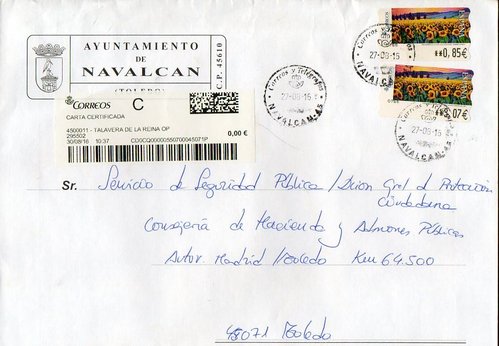 AYUNTAMIENTO
DE
NAVALCAN
(TOLEDO)
C.P. 45610
Correos
C
CARTA CERTIFICADA
4500011 - TALAVERA DE LA REINA OP
295502
30/08/16 10:37
CD0CQ00000550700045071P
0,00 €
Correos y Telégrafos
27-08-16
NAVALCAN-45
**0,85€
Correos y Telégrafos
27-08-16
NAVALCAN
07€
27-08-16
NAVALCAN-45
Sr. Servicio de Seguridad Pública / Dicion Gral d Protección
Ciudadana
Consejería de Hacienda y Admones Públicas
Autov. Madrid / Toledo Km 64.500
45071 Toledo